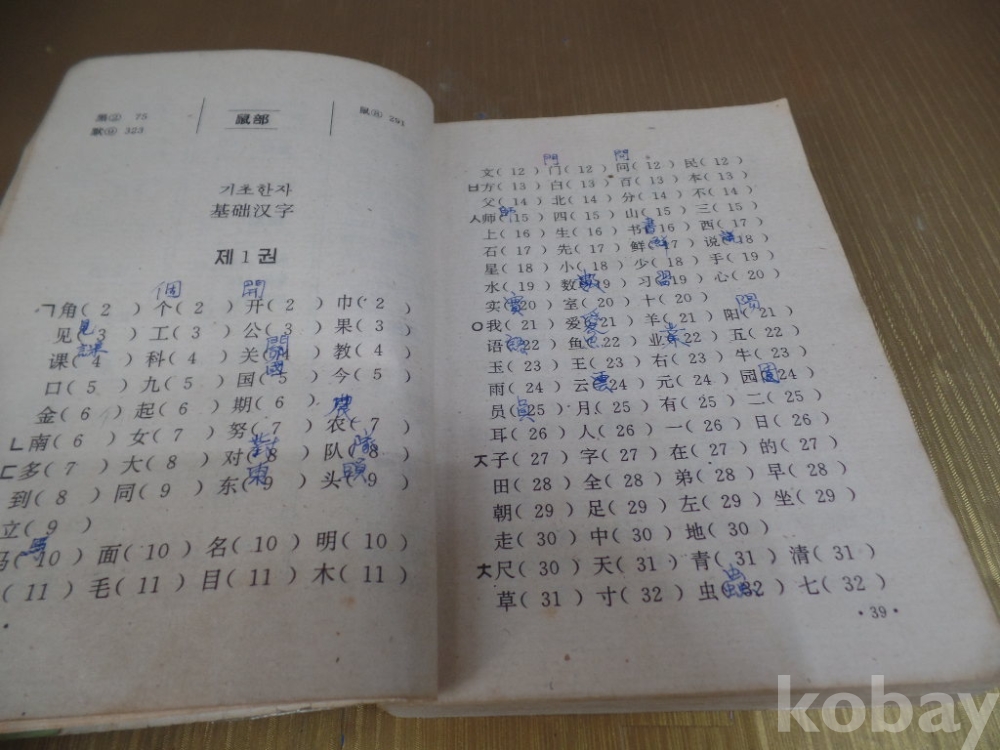 鼠部
黑③ 75
鼠⑬ 291
323
기초한자
基础汉字
제1권
個 開
ㄱ角( 2 ) 个( 2 ) 开( 2 ) 巾( 2
见( 3 ) 工( 3 ) 公( 3 ) 果( 3
课( 4 ) 科( 4 ) 关( 4 ) 教( 4
口( 5 ) 九( 5 ) 国( 5 ) 今( 5
金( 6 ) 起( 6 ) 期( 6 )
ㄴ南( 6 ) 女( 7 ) 努( 7 ) 农( 7
ㄷ多( 7 ) 大( 8 ) 对( 8 ) 队( 8
到( 8 ) 同( 9 ) 东( 9 ) 头( 9
立( 9 )
马( 10 ) 面( 10 ) 名( 10 ) 明( 10 )
( 11 ) 毛( 11 ) 目( 11 ) 木( 11 )
門 問
文( 12 ) 门( 12 ) 问( 12 ) 民( 12 )
ㅂ方( 13 ) 白( 13 ) 百( 13 ) 本( 13 )
父( 14 ) 北( 14 ) 分( 14 ) 不( 14 )
人师( 15 ) 四( 15 ) 山( 15 ) 三( 15 )
上( 16 ) 生( 16 ) 书( 16 ) 西( 17 )
石( 17 ) 先( 17 ) 鲜( 17 ) 说( 18 )
星( 18 ) 小( 18 ) 少( 18 ) 手( 19 )
水( 19 ) 数( 19 ) 习( 19 ) 心( 20 )
实( 20 ) 室( 20 ) 十( 20 )
陽
ㅇ我( 21 ) 爱( 21 ) 羊( 21 ) 阳( 21 )
语( 22 ) 鱼( 22 ) 业( 22 ) 五( 22 )
玉( 23 ) 王( 23 ) 右( 23 ) 牛( 23 )
雨( 24 ) 云( 24 ) 元( 24 ) 园( 24 )
员( 25 ) 月( 25 ) 有( 25 ) 二( 25 )
耳( 26 ) 人( 26 ) 一( 26 ) 日( 26 )
ㅈ子( 27 ) 字( 27 ) 在( 27 ) 的( 27 )
田( 28 ) 全( 28 ) 弟( 28 ) 早( 28 )
朝( 29 ) 足( 29 ) 左( 29 ) 坐( 29 )
走( 30 ) 中( 30 ) 地( 30 )
ㅊ尺( 30 ) 天( 31 ) 青( 31 ) 清( 31 )
草( 31 ) 寸( 32 ) 虫( 32 ) 七( 32 )
·39·
kobay